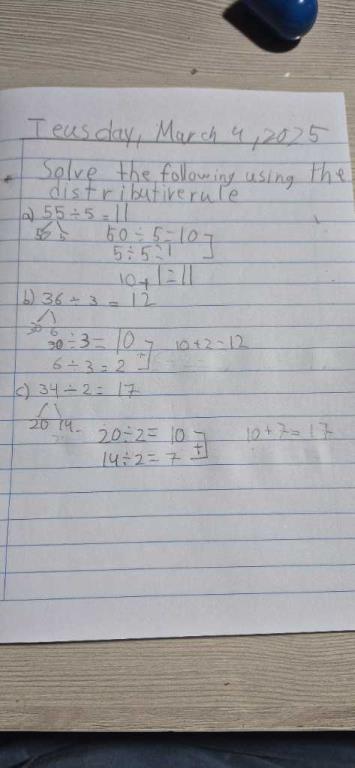 Teusday, March 4, 2025
Solve the following using the
distributive rule
a) 55 ÷ 5 = 11
50 5 50 ÷ 5 = 10
5 ÷ 5 = 1
10 + 1 = 11
b) 36 ÷ 3 = 12
30 6
30 ÷ 3 = 10 10 + 2 = 12
6 ÷ 3 = 2 +
c) 34 ÷ 2 = 17
20 14
20 ÷ 2 = 10 10 + 7 = 17
14 ÷ 2 = 7 +